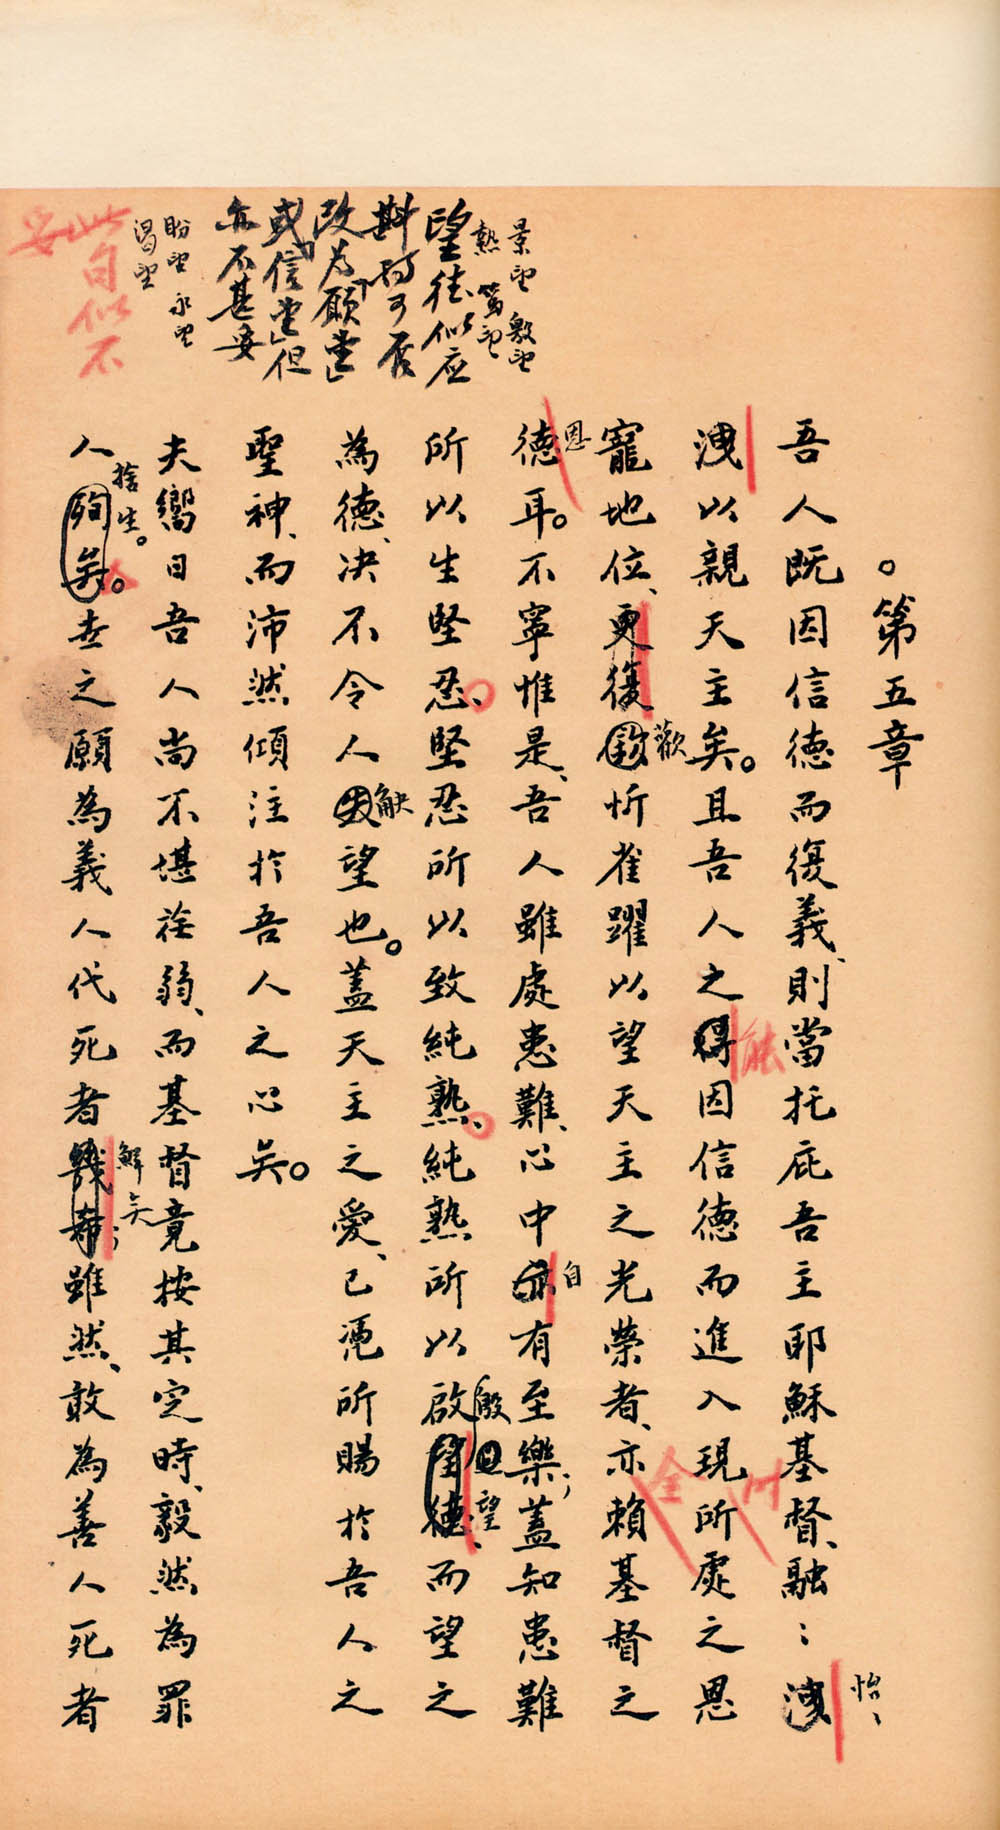 。第五章
吾人既因信德而復義、則當托庇吾主耶穌基督、融〻洩
怡〻
洩以親天主矣。且吾人之得因信德而進入現所處之恩
能
所
寵地位、更復欽忻雀躍以望天主之光榮者、亦賴基督之
歡
全
德耳。不寧惟是、吾人雖處患難、心中亦有至樂；蓋知患難
恩
自
所以生堅忍、堅忍所以致純熟、純熟所以啟望德、而望之
殷
望
為德、決不令人失望也。蓋天主之愛、已憑所賜於吾人之
觖
聖神、而沛然傾注於吾人之心矣。
夫嚮日吾人尚不堪荏弱、而基督竟按其定時、毅然為罪
人殉矣。世之願為義人代死者幾希；雖然、敢為善人死者
捨生。
鮮矣
景望 殷望
熱望 篤望
望德似应
斟酌可否
改為「願望」
或「信望」但
亦不甚妥
盼望 永望
渴望
此句似不
妥